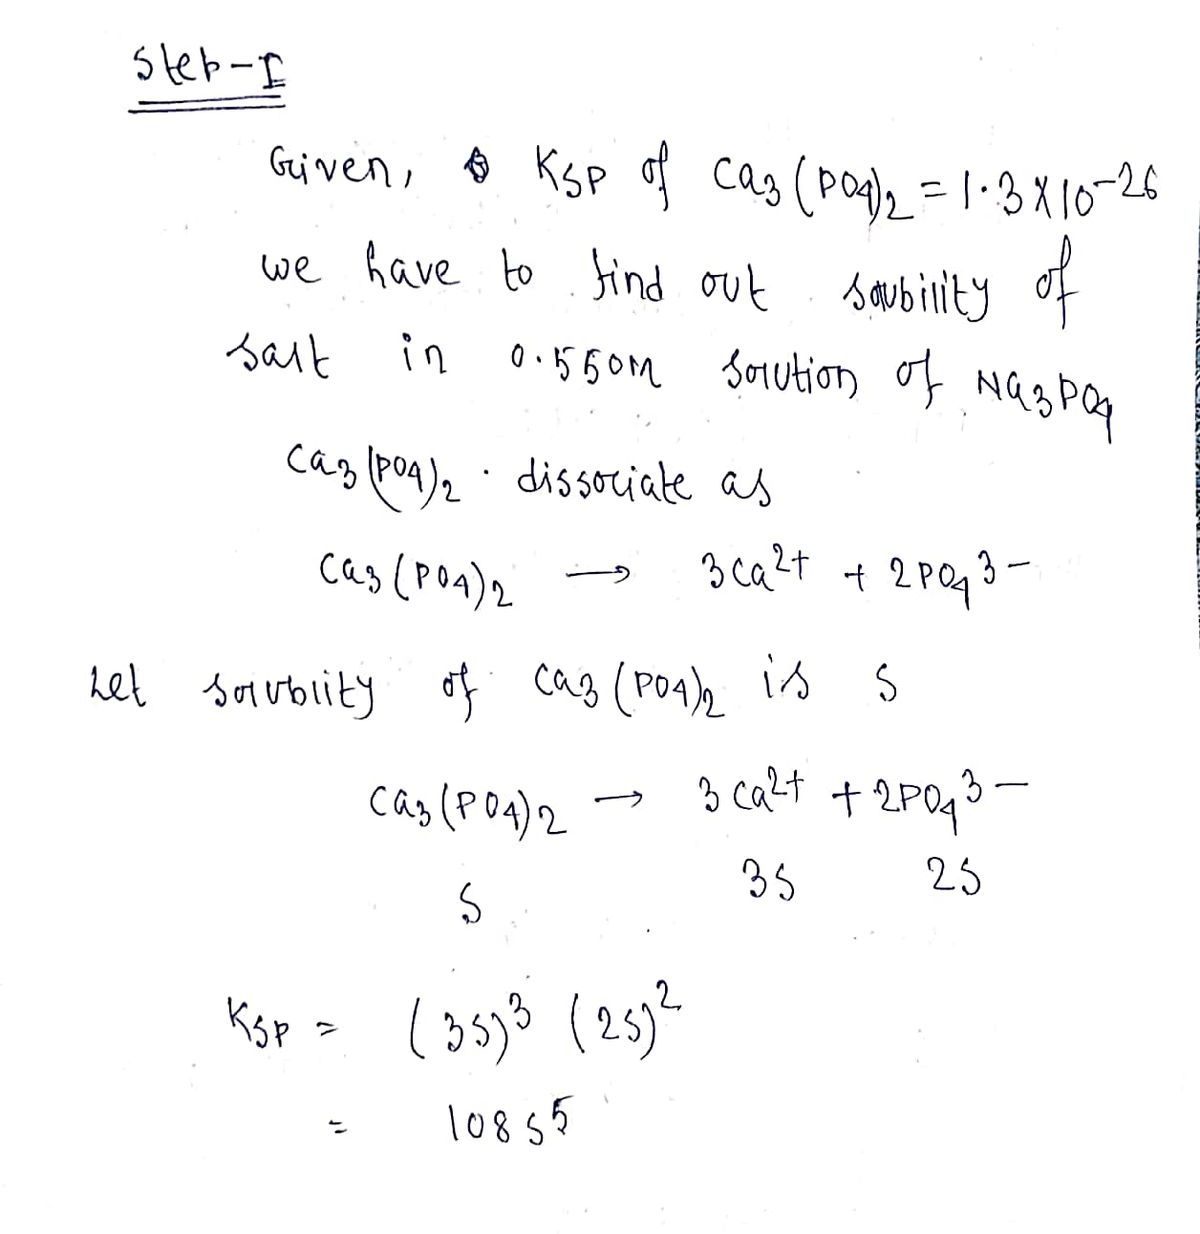 Step-I
Given, Ksp of Ca3(PO4)2 = 1.3 X 10-26
we have to find out soubility of
salt in 0.550M solution of Na3PO4
Ca3(PO4)2 . dissociate as
Ca3(PO4)2 → 3Ca2+ + 2PO4 3-
Let solubliity of Ca3(PO4)2 is S
Ca3(PO4)2 → 3Ca2+ + 2PO4 3-
S 3S 2S
Ksp = (3S)3 (2S)2
= 108 S5